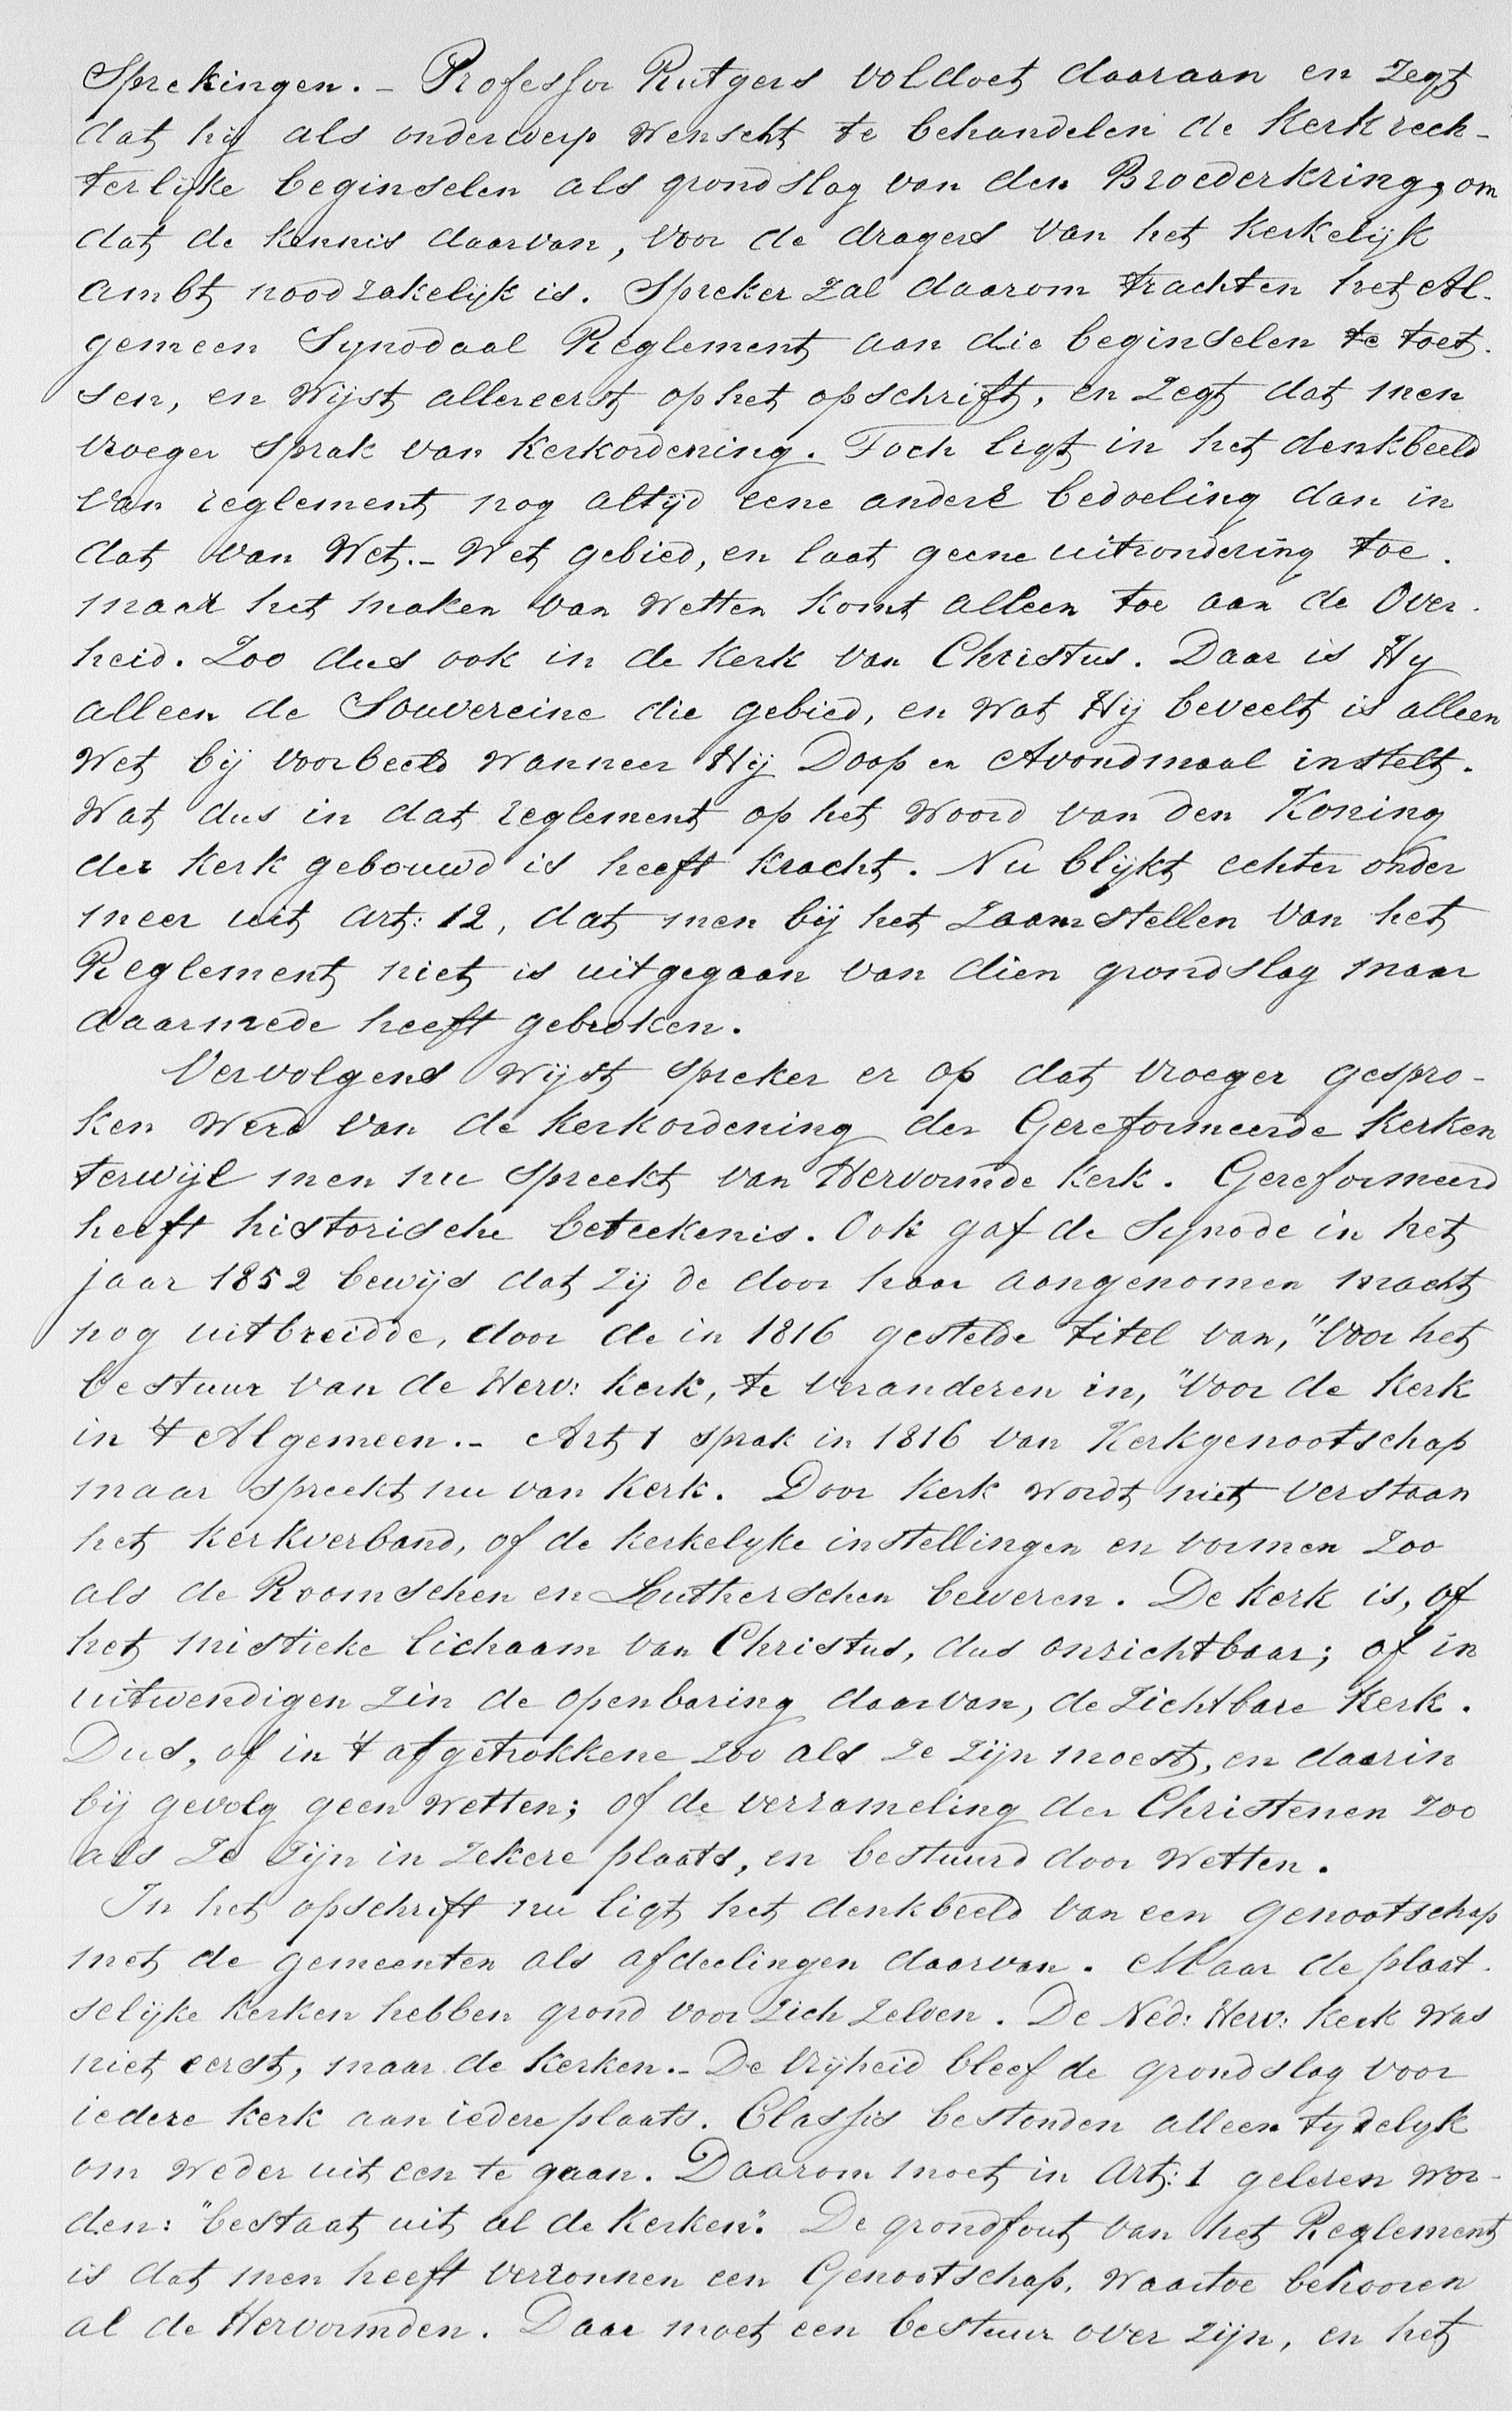 Sprekingen. – Professor Rutgers voldoet daaraan en zegt
dat hij als onderwerp wenscht te behandelen de Kerkrech-
terlijke beginselen als grondslag van den Broederkring, om
dat de kennis daarvan, voor de dragers van het kerkelijk
ambt noodzakelijk is. Spreker zal daarom trachten het Al-
gemeen Synodaal Reglement aan die beginselen te toet-
sen, en wijst allereerst op het opschrift, en zegt dat men
vroeger sprak van Kerkordening. Toch ligt in het denkbeeld
van reglement nog altijd eene andere bedoeling dan in
dat van Wet. – Wet gebied, en laat geene uitzondering toe.
maar het maken van Wetten komt alleen toe aan de Over-
heid. Zoo dus ook in de Kerk van Christus. Daar is Hy
alleen de Souvereine die gebied, en wat Hij beveelt is alleen
Wet bij voorbeeld wanneer Hij Doop en Avondmaal instelt.
Wat dus in dat reglement op het Woord van den Koning
der Kerk gebouwd is heeft kracht. Nu blijkt echter onder
meer uit art: 12, dat men bij het zaamstellen van het
Reglement niet is uitgegaan van dien grondslag maar
daarmede heeft gebroken.
Vervolgens wijst spreker er op dat vroeger gespro-
ken werd van de Kerkordening der Gereformeerde Kerken
terwijl men nu spreekt van Hervormde Kerk. Gereformeerd
heeft historische beteekenis. Ook gaf de Synode in het
jaar 1852 bewijs dat zij de door haar aangenomen macht
nog uitbreidde, door de in 1816 gestelde titel van, "Voor het
bestuur van de Herv: Kerk, te veranderen in, "Voor de Kerk
in 't Algemeen. – Art 1 sprak in 1816 van Kerkgenootschap
maar spreekt nu van Kerk. Door Kerk wordt niet verstaan
het kerkverband, of de kerkelyke instellingen en vormen zoo
als de Roomschen en Lutherschen beweren. De Kerk is, of
het mistieke lichaam van Christus, dus onzichtbaar; of in
uitwendigen zin de openbaring daarvan, de zichtbare Kerk.
Dus, of in 't afgetrokkene zoo als ze zijn moest, en daarin
bij gevolg geen Wetten; of de verzameling der Christenen zoo
als ze zijn in zekere plaats, en bestuurd door Wetten.
In het opschrift nu ligt het denkbeeld van een genootschap
met de gemeenten als afdeelingen daarvan. Maar de plaat-
selijke kerken hebben grond voor zich zelven. De Ned: Herv: Kerk was
niet eerst, maar de Kerken. – De vrijheid bleef de grondslag voor
iedere Kerk aan iedere plaats. Classis bestonden alleen tydelyk
om weder uit een te gaan. Daarom moet in Art: 1 gelezen wor-
den: "bestaat uit al de Kerken". De grondfout van het Reglement
is dat men heeft verzonnen een Genootschap, waartoe behooren
al de Hervormden. Daar moet een bestuur over zijn, en het